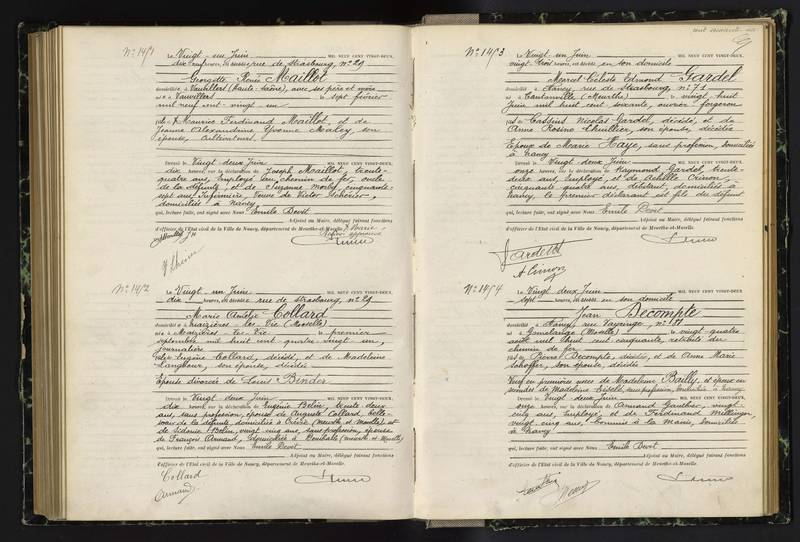 N° 1451
Le Vingt-un Juin MIL NEUF CENT VINGT-DEUX,
dix heures, est décédée rue de Strasbourg, n° 29
Georgette Renée Maillot
domiciliée à Vauvillert (Haute Saône), avec ses père et mère
née à Vauvillert le sept février
mil neuf cent vingt un
fille de Maurice Ferdinand Maillot, et de
Jeanne Alexandrine Yvonne son
épouse, cultivateurs.
Dressé le Vingt deux Juin MIL NEUF CENT VINGT-DEUX,
dix heures, sur la déclaration de Joseph Maillot, trente-
quatre ans, employé au chemin de fer, oncle
de la défunte, et de Suzanne cinquante-
sept ans, Infirmière, Veuve de Victor
domiciliés à Nancy
qui, lecture faite, ont signé avec Nous Emile Devit
Adjoint au Maire, délégué faisant fonctions
d'officier de l'Etat civil de la Ville de Nancy, département de Meurthe-et-Moselle.
N° 1452
Le Vingt-un Juin MIL NEUF CENT VINGT-DEUX,
dix heures, est décédée rue de Strasbourg, n° 29
Marie Amélie Collard
domiciliée à Maizières les Vic (Moselle)
née à Maizières les Vic le premier
septembre mil huit cent quatre vingt un,
journalière
fille de Eugène Collard, décédé, et de Madeleine
Langbour, son épouse, décédée
Epouse divorcée de Louis Binder
Dressé le Vingt deux Juin MIL NEUF CENT VINGT-DEUX,
dix heures, sur la déclaration de Eugénie Belin, trente deux
ans, sans profession, épouse de Auguste Collard, belle-
soeur de la défunte, domiciliés à (Meurthe et Moselle) et
de Belin, vingt cinq ans, sans profession, épouse
de François Armand, domiciliés à (Meurthe et Moselle)
qui, lecture faite, ont signé avec Nous Emile Devit
Adjoint au Maire, délégué faisant fonctions
d'officier de l'Etat civil de la Ville de Nancy, département de Meurthe-et-Moselle.
Collard
Armand
N° 1453
Le Vingt-un Juin MIL NEUF CENT VINGT-DEUX,
vingt trois heures, est décédé en son domicile
Marcel Céleste Edmond Gardel
domicilié à Nancy, rue de Strasbourg n° 71
né à (Meurthe) le vingt huit
Juin mil huit cent soixante, ouvrier forgeron
fils de Nicolas Gardel, décédé, et de
Anne Rosine Thuillier, son épouse, décédée
Epoux de Marie Haye, sans profession, domiciliée
à Nancy
Dressé le Vingt deux Juin MIL NEUF CENT VINGT-DEUX,
onze heures, sur la déclaration de Raymond Gardel, trente-
deux ans, employé, et de Achille
cinquante quatre ans, débitant, domiciliés à
Nancy, le premier déclarant est fils du défunt
qui, lecture faite, ont signé avec Nous Emile Devit
Adjoint au Maire, délégué faisant fonctions
d'officier de l'Etat civil de la Ville de Nancy, département de Meurthe-et-Moselle.
N° 1454
Le Vingt deux Juin MIL NEUF CENT VINGT-DEUX,
sept heures, est décédé en son domicile
Jean Decompte
domicilié à Nancy, rue
né à (Moselle) le vingt quatre
août mil huit cent cinquante, retraité du
chemin de fer
fils de Pierre Decompte, décédé, et de Anne Marie
Schoffer, son épouse, décédée
Veuf en premières noces de Madeleine Bailly, et époux en
secondes de Madeleine sans profession, domiciliée à Nancy
Dressé le Vingt deux Juin MIL NEUF CENT VINGT-DEUX,
onze heures, sur la déclaration de Armand Gauthier, vingt
cinq ans, employé, et de Ferdinand
vingt cinq ans, commis à la Mairie, domiciliés
à Nancy
qui, lecture faite, ont signé avec Nous Emile Devit
Adjoint au Maire, délégué faisant fonctions
d'officier de l'Etat civil de la Ville de Nancy, département de Meurthe-et-Moselle.